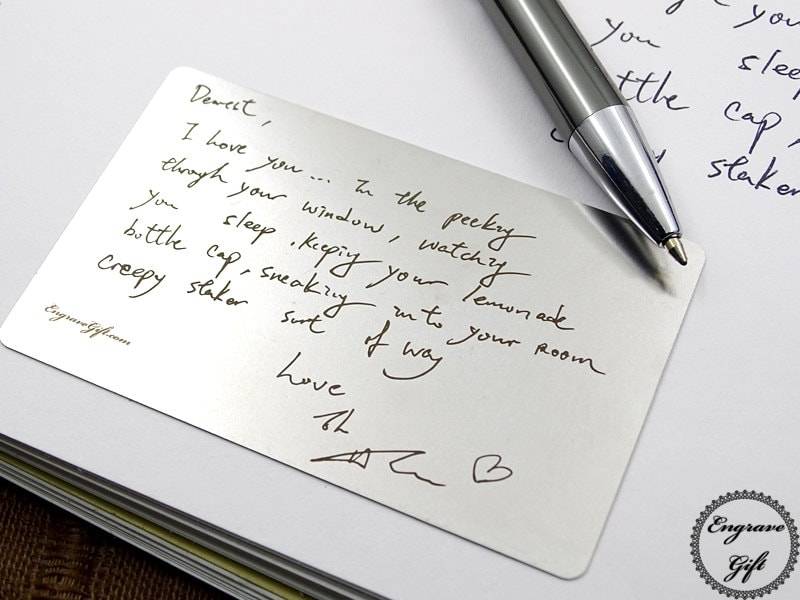 Dearest,
I love you... In the peeking
through your window, watching
you sleep, keeping your lemonade
bottle cap, sneaking into your room
creepy stalker sort of way
Love
EngraveGift.com
you
you sleep
ttle cap,
stalker
Engrave
Gift